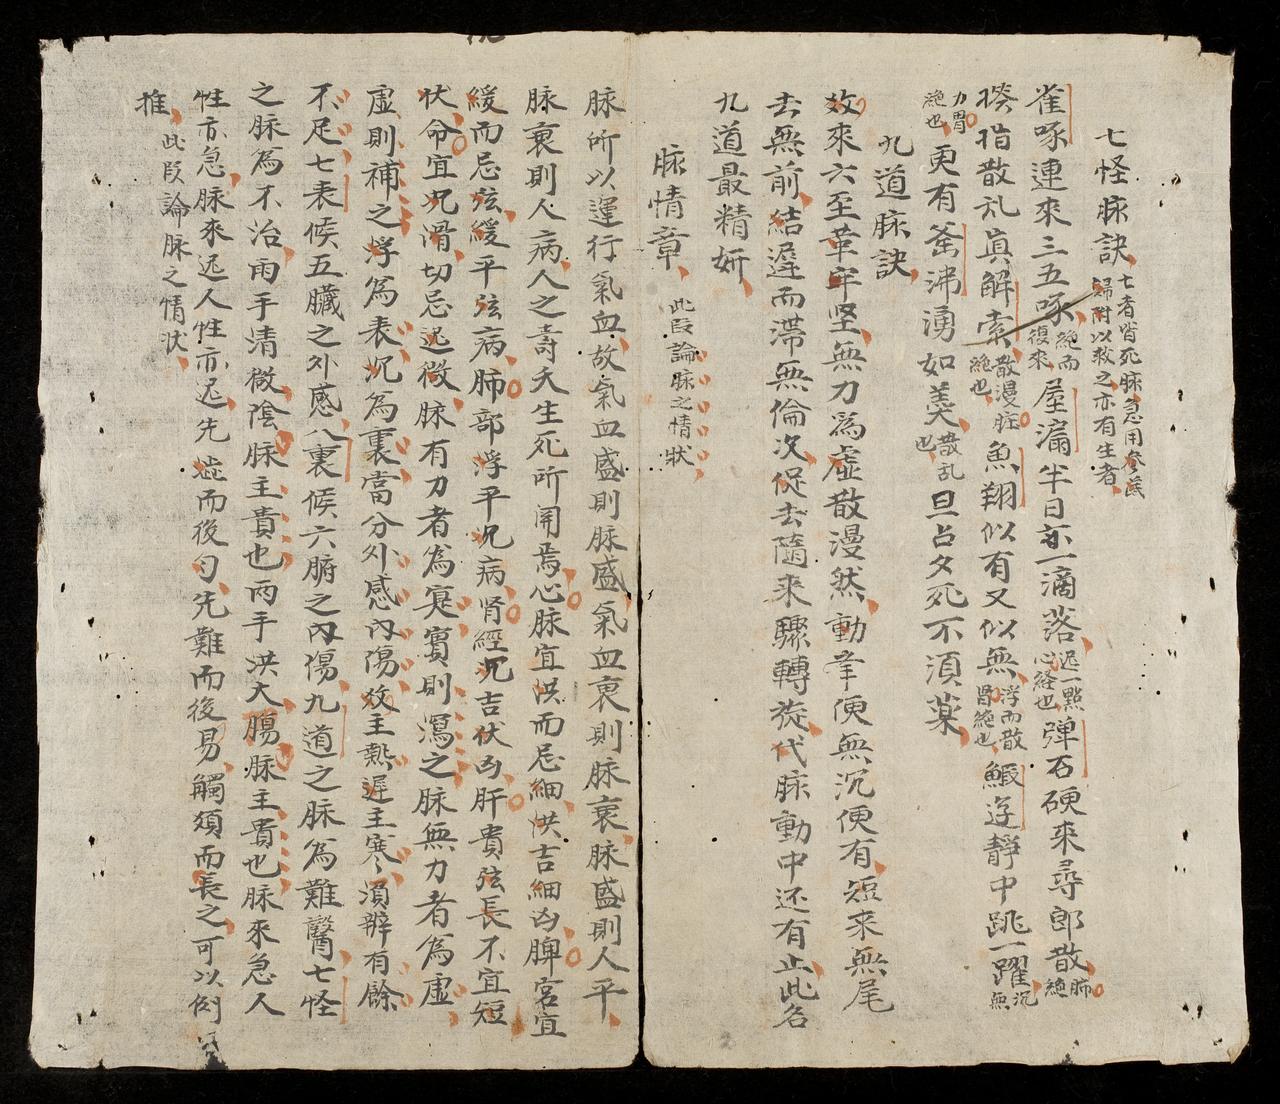 七怪脉訣 七者皆死脉急用參茋歸附以救之亦有生者
雀啄連來三五啄 絶而復來 屋漏半日示一滴落 迟一點心経也 弹石硬來尋郎散 肺絶
揬指散乱真解索 散漫胜絶也 魚翔似有又似無 浮而散腎絶也 鰕逰靜中跳一躍 沉無
力胃絶也 更有釜沸湧如羙 散乱也 旦占夕死不湏薬
九道脉訣
效來六至革牢坚無力為虛散漫然動牽便無沉便有短來無尾
去無前結遅而滞無倫次促去隨來驟轉旋代脉動中还有止此名
九道最精妍
脉情章 此段論脉之情状
脉所以運行氣血故氣血盛則脉盛氣血衰則脉衰脉盛則人平
脉衰則人病人之壽夭生死所関焉心脉宜洪而忌細洪吉細凶脾宮宜
緩而忌弦緩平弦病肺部浮平沉病肾經沉吉伏凶肝貴弦長不宜短
状命宜沉滑切忌迟微脉有力者為寔實則瀉之脉無力者為虛
虛則補之浮為表沉為裏當分外感内傷效主熱遅主寒湏辨有餘
不足七表候五臓之外感八裏候六腑之内傷九道之脉為難醫七怪
之脉為不治両手清微陰脉主貴也两手洪大腸脉主貴也脉來急人
性亦急脉來迟人性亦迟先澁而後匀先難而後易觸類而長之可以例
推 此段論脉之情状